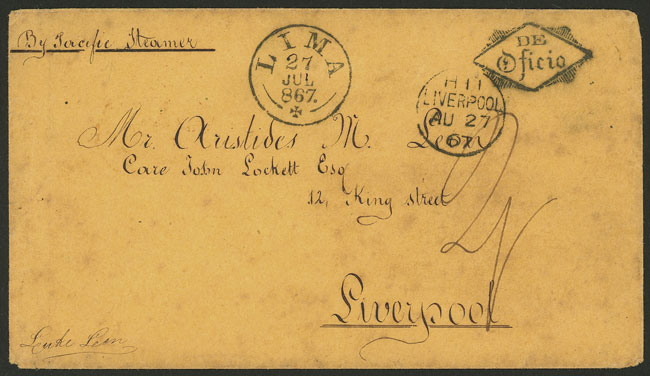 By Pacific Steamer
LIMA
27
JUL
867.
DE
Oficio
LIVERPOOL
AU 27
67
Mr. Aristides M.
Care John Lockett Esq
12, King street
Liverpool
Leon